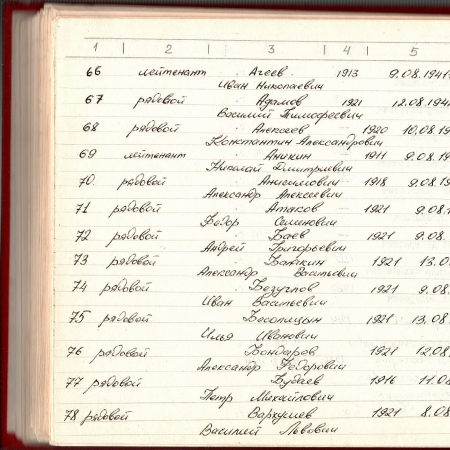 1 | 2 | 3 | 4 | 5
66 лейтенант Агеев 1913 9.08.1941
Иван Николаевич
67 рядовой Адамов 1921 12.08.194
Василий Тимофеевич
68 рядовой Алексеев 1920 10.08.19
Константин Александрович
69 лейтенант Аникин 1911 9.08.19
Николай Дмитриевич
70. рядовой Анисимович 1918 9.08.19
Александр Алексеевич
71 рядовой Атаков 1921 9.08.1
Федор Семенович
72 рядовой Баев 1921 9.08.
Андрей Григорьевич
73 рядовой 1921 13.0
Александр Васильевич
74 рядовой Безуглов 1921 9.08.
Иван Васильевич
75 рядовой Бесолицын 1921 13.08.
Илья Иванович
76 рядовой Бондарев 1921 12.08.
Александр Федорович
77 рядовой Будаев 1916 11.08
Петр Михайлович
78 рядовой Вархушев 1921 8.08
Василий Львович